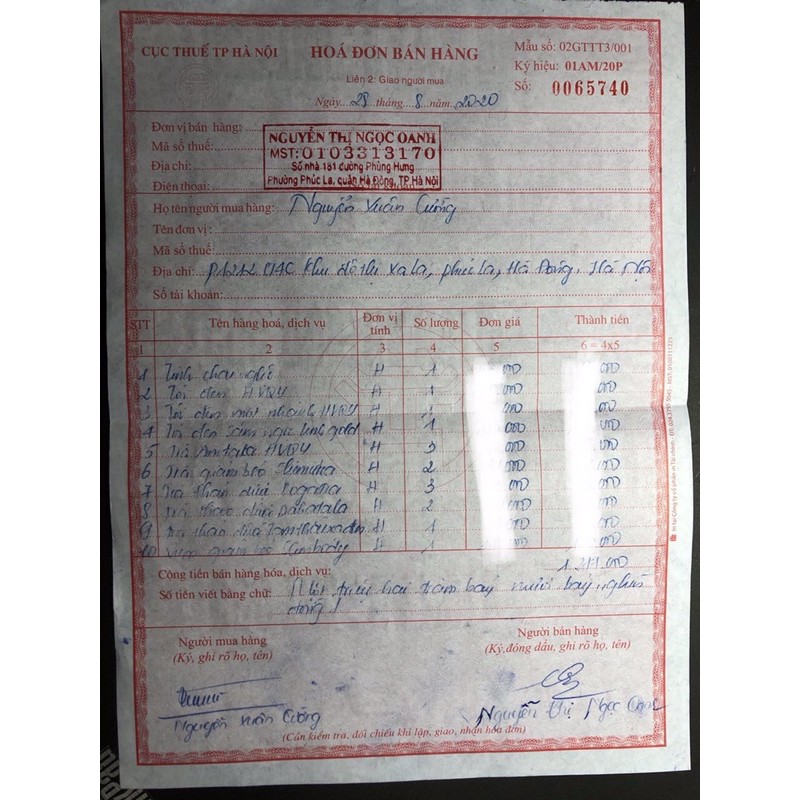 CỤC THUẾ TP HÀ NỘI
HOÁ ĐƠN BÁN HÀNG
Liên 2: Giao người mua
Ngày...29 tháng...8 năm...2020
Mẫu số: 02GTTT3/001
Ký hiệu: 01AM/20P
Số: 0065740
Đơn vị bán hàng:
Mã số thuế:
Địa chỉ:
Điện thoại:
NGUYỄN THỊ NGỌC OANH
MST: 0103313170
Số nhà 181 đường Phùng Hưng
Phường Phúc La, quận Hà Đông, TP.Hà Nội
Họ tên người mua hàng: Nguyễn Xuân Cường
Tên đơn vị:
Mã số thuế:
Địa chỉ: P1212 Khu đô thị xa la, phúc la, Hà Đông, Hà Nội
Số tài khoản:
STT Tên hàng hoá, dịch vụ Đơn vị tính Số lượng Đơn giá Thành tiền
1 2 3 4 5 6 = 4x5
1 Tinh nghệ H 1 000 000
2 Tỏi đen HVQY H 1 000 000
3 Tỏi đen một nhánh HVQY H 1 000 000
4 Tỏi đen sâm ngọc linh gold H 1 000 000
5 Trà HVQY H 3 000 000
6 Trà giảm béo H 2 000 000
7 Trà thảo dược H 3 000 000
8 Trà thảo dược H 2 000 000
9 Trà thảo dược H 1 000
10 Viên giảm béo H 1 000
Cộng tiền bán hàng hóa, dịch vụ: 1.277.000
Số tiền viết bằng chữ: Một triệu hai trăm bảy mươi bảy nghìn
đồng
Người mua hàng
(Ký, ghi rõ họ, tên)
Người bán hàng
(Ký, đóng dấu, ghi rõ họ, tên)
Nguyễn Xuân Cường
Nguyễn Thị Ngọc Oanh
(Cần kiểm tra, đối chiếu khi lập, giao, nhận hóa đơn)